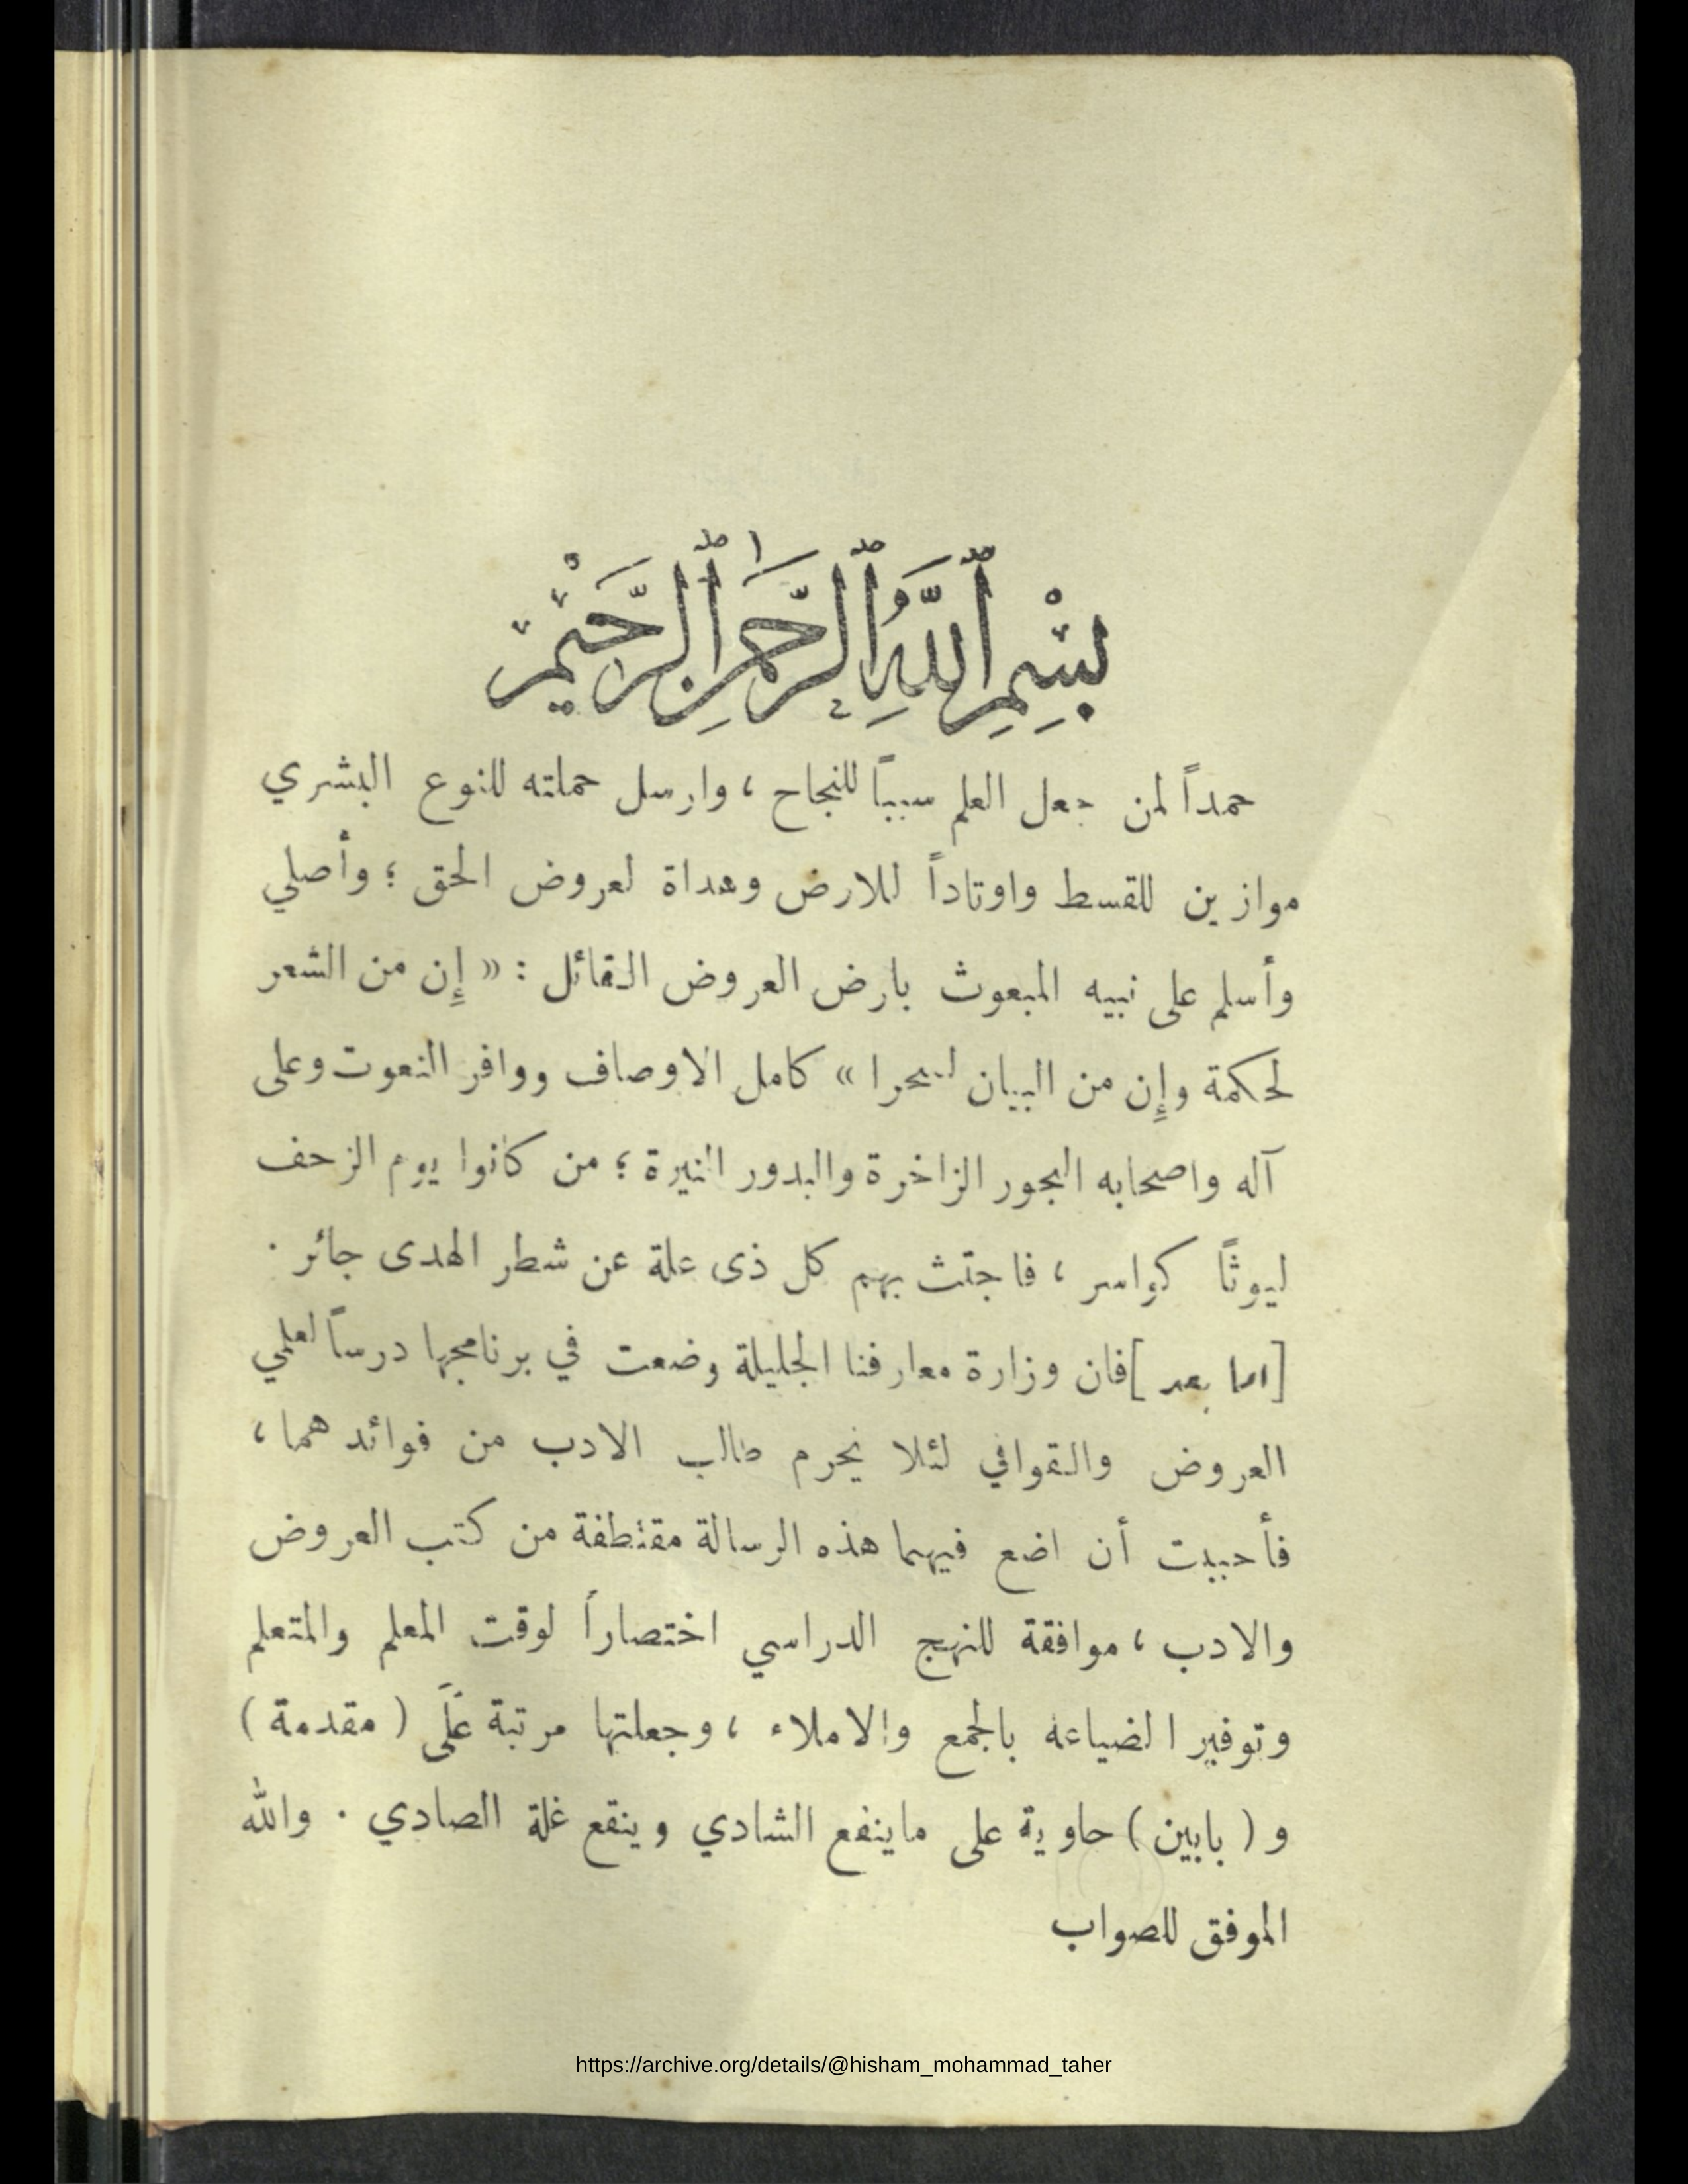 بِسْمِ ٱللَّهِ ٱلرَّحْمَٰنِ ٱلرَّحِيمِ
حمداً لمن جعل العلم سبباً للنجاح ، وارسل حملته للنوع البشري
موازين للقسط واوتاداً للارض وهداة لعروض الحق ؛ وأصلي
وأسلم على نبيه المبعوث بارض العروض القائل : « إِن من الشعر
لحكمة وإِن من البيان لسحرا » كامل الاوصاف ووافر النعوت وعلى
آله واصحابه البحور الزاخرة والبدور النيرة ؛ من كانوا يوم الزحف
ليوثاً كواسر ، فاجتث بهم كل ذى علة عن شطر الهدى جائر .
[ اما بعد ] فان وزارة معارفنا الجليلة وضعت في برنامجها درساً لعلمي
العروض والقوافي لئلا يحرم طالب الادب من فوائدهما ،
فأحببت أن اضع فيهما هذه الرسالة مقتطفة من كتب العروض
والادب ، موافقة للنهج الدراسي اختصاراً لوقت المعلم والمتعلم
وتوفير الضياعه بالجمع والاملاء ، وجعلتها مرتبة عَلَى ( مقدمة )
و ( بابين ) حاوية على ماينفع الشادي وينقع غلة الصادي . والله
الموفق للصواب
https://archive.org/details/@hisham_mohammad_taher